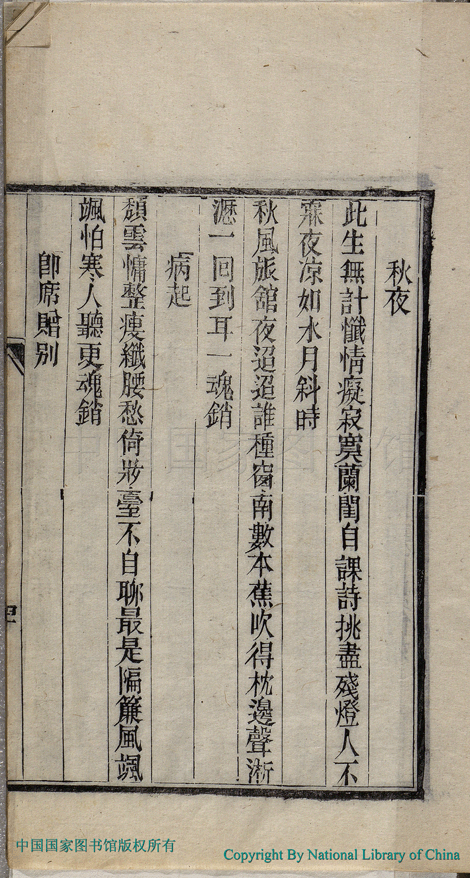 秋夜
此生無計懺情癡寂寞蘭閨自課詩挑盡殘燈人不
寐夜涼如水月斜時
秋風旅舘夜迢迢誰種窗南數本蕉吹得枕邊聲淅
瀝一回到耳一魂銷
病起
頽雲慵整瘦纖腰愁倚妝臺不自聊最是隔簾風颯
颯怕寒人聽更魂銷
卽席贈别
中国国家图书馆版权所有
Copyright By National Library of China